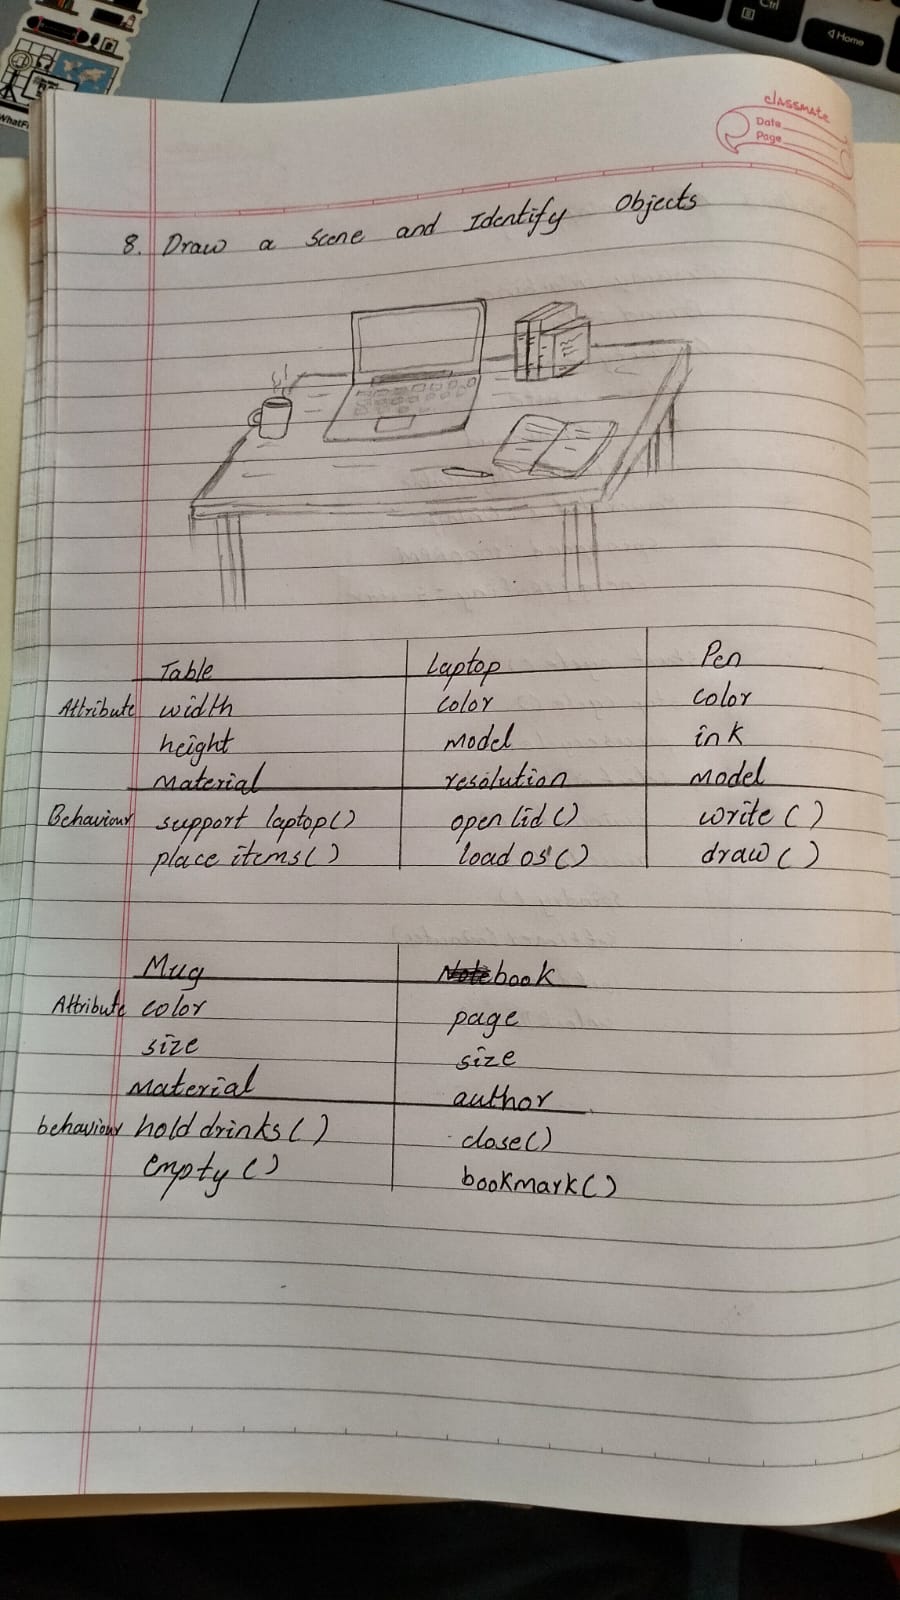 Ctrl
Home
WhatF
classmate
Date
Page
8. Draw a Scene and Identify Objects
Table Laptop Pen
Attribute width color color
height model ink
Material resolution Model
Behaviour support laptop() open lid() write()
place items() load os() draw()
Mug Notebook
Attribute color page
size size
Material author
behaviour hold drinks() close()
empty() bookmark()